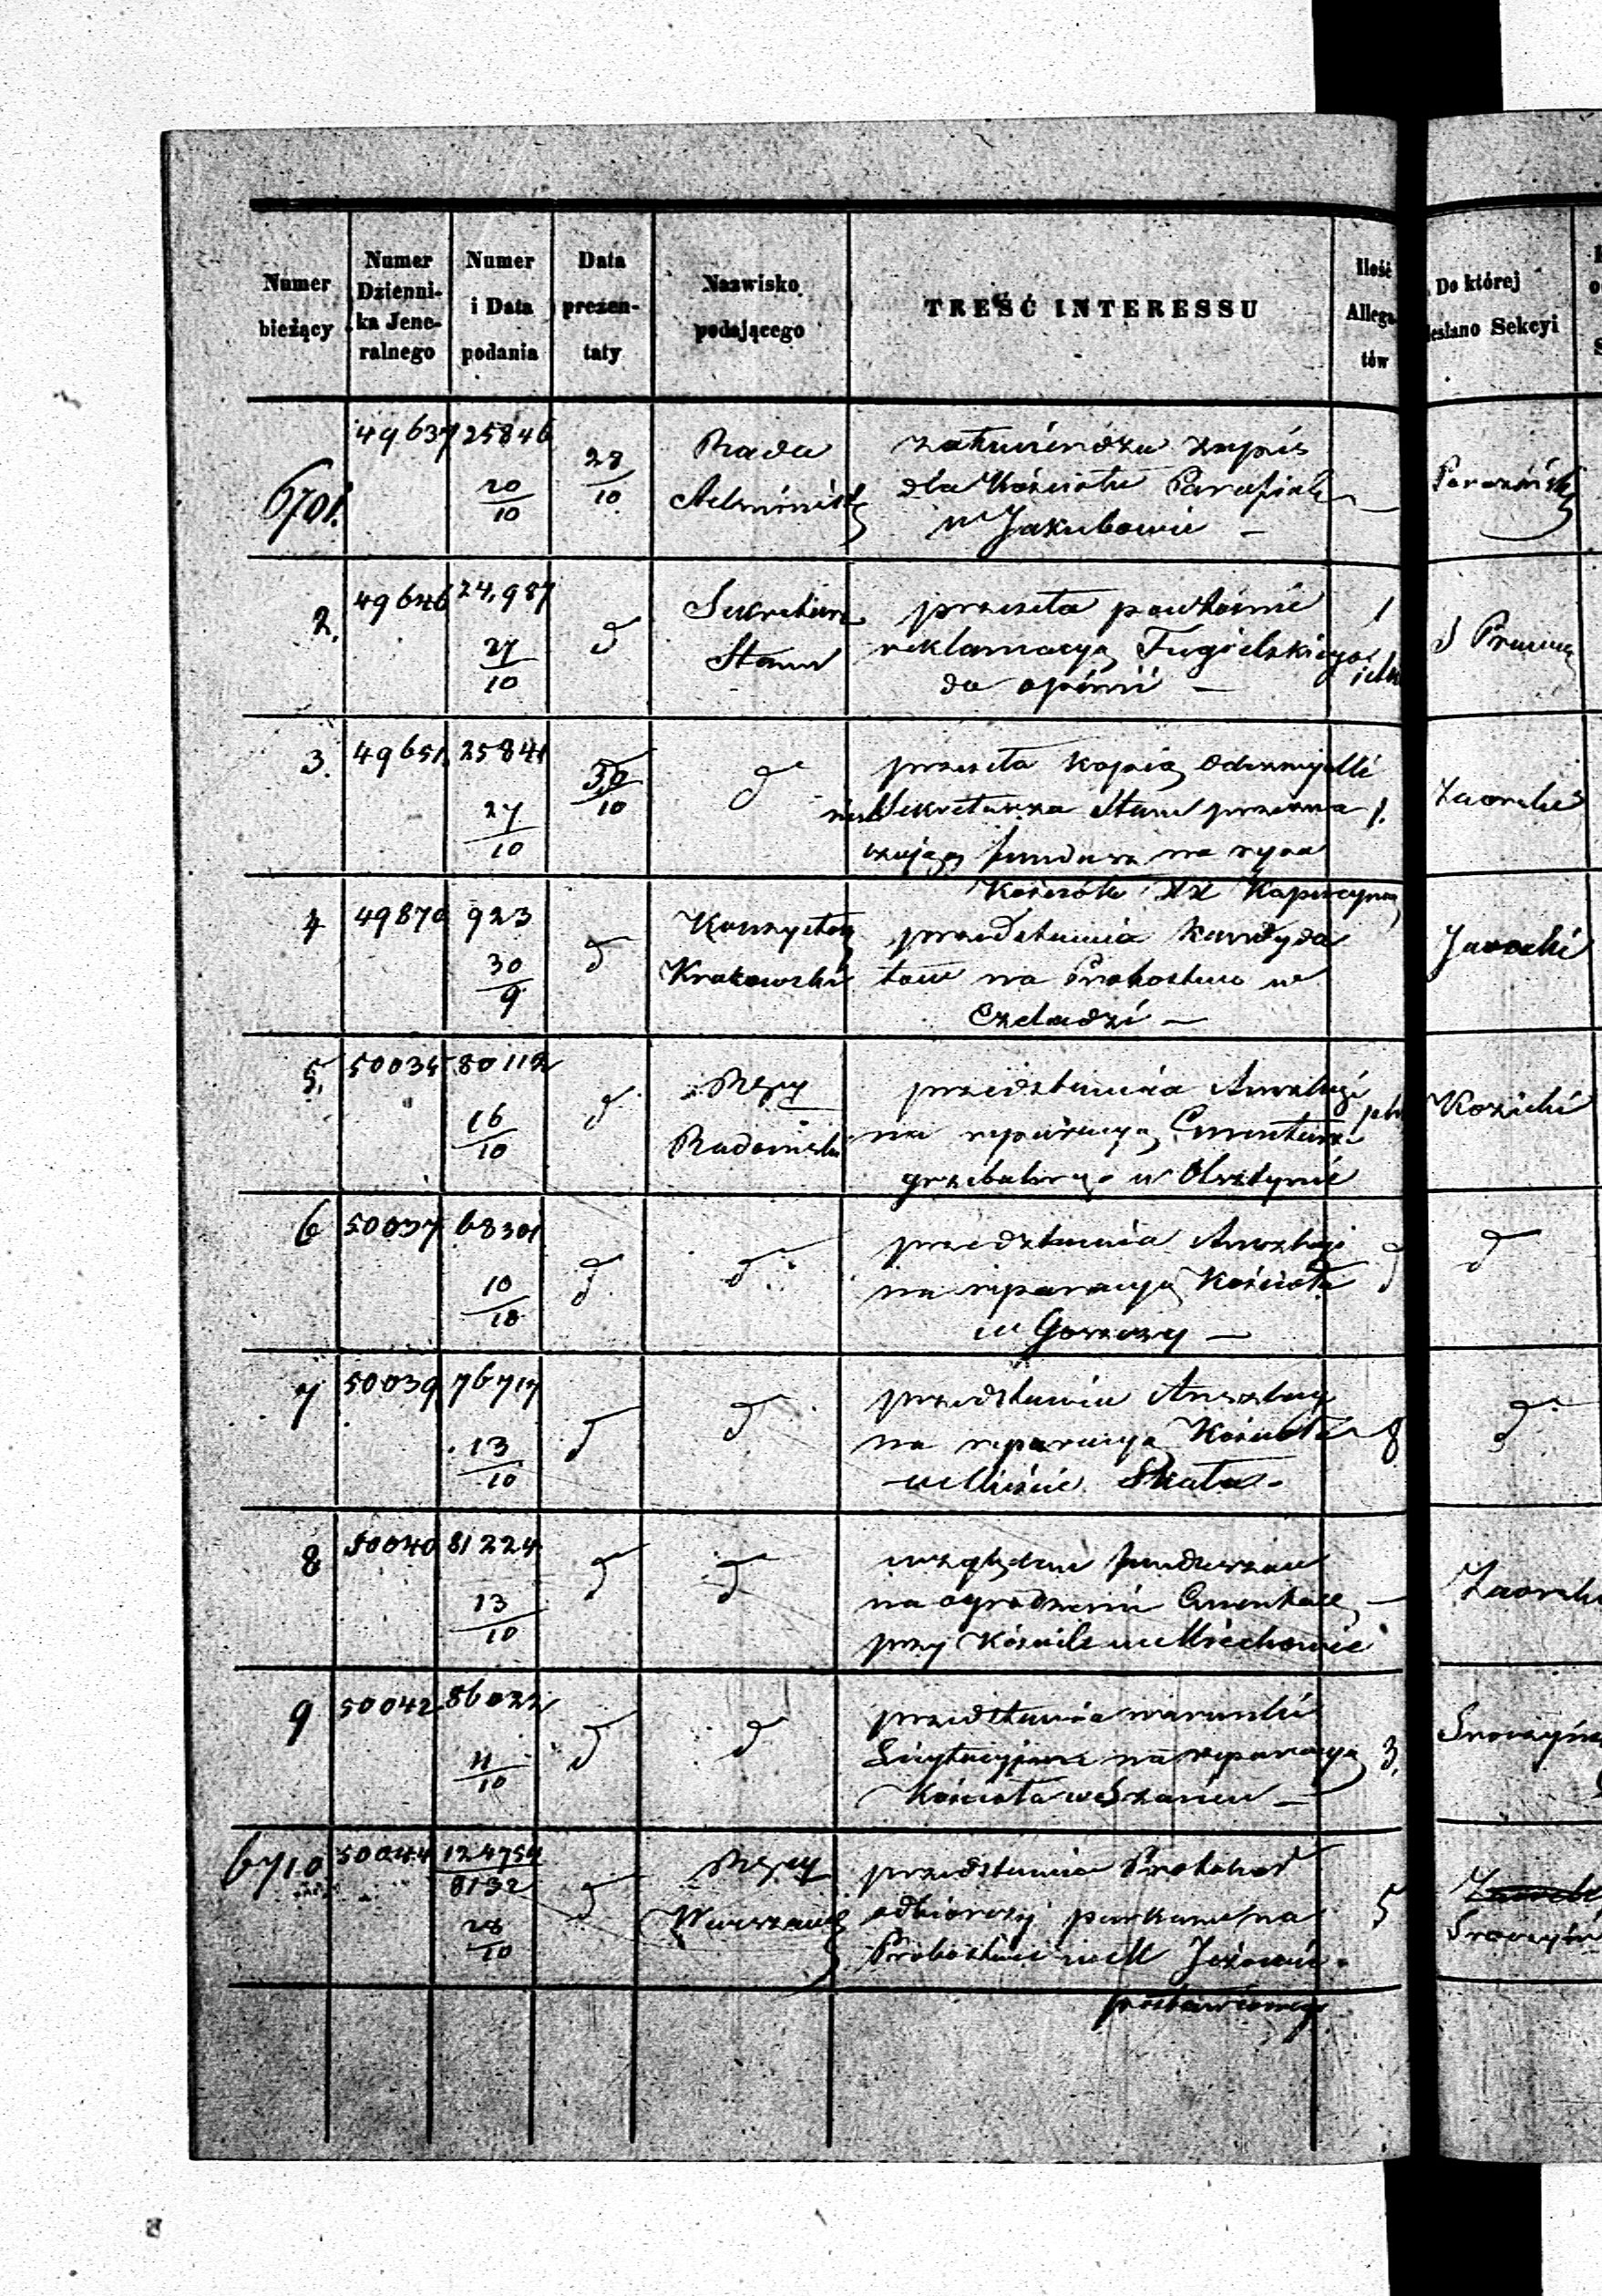 Numer bieżący
Numer Dzienni- ka Jene- ralnego
Numer i Data podania
Data prezen- taty
Nazwisko podającego
TREŚĆ INTERESSU
Ilość Allega- tów
Do której
esłano Sekcyi
6701. 49637 25846 20/10 28/10 Rada
zatwierdza zapis
dla Kościoła Parafial
w Jakubowie —
2. 49646 24,987 27/10 d Sekretarz Stanu
przesyła powtórnie
reklamacyą
do opinii — 1
3. 49651 25841 27/10 30/10 d
przesyła kopią
Sekretarza Stanu 1.
fundusz na
Kościoła XX Kapucynów
4 49870 923 30/9 d Konsystorz Krakowski
przedstawia kandyda
tów na Probostwo w
Czeladzi — Jarocki
5. 50034 80112 16/10 d Rząd Radomski
przedstawia Anszlagi
na reparacyą Cmentarza
grzebalnego w Olsztynie Kozicki
6 50037 68301 10/10 d d
przedstawia Anszlagi
na reparacyą Kościoła
w d d
7 50039 76717 13/10 d d
przedstawia Anszlag
na reparacyą Kościoła 8
w Mieście Skała - d
8 50040 81224 13/10 d d
względem funduszu
na ogrodzenie Cmentarza —
przy Kościele w Miechowie
9 50042 86022 11/10 d d
przedstawia warunki
Licytacyjne na reparacyą 3.
Kościoła w
6710 50044 124754/8132 28/10 d Rząd Warszaws
przedstawia Protokoł
odbiorczy parkanu na 5
Probostwie w M Jeżowie
postawionego